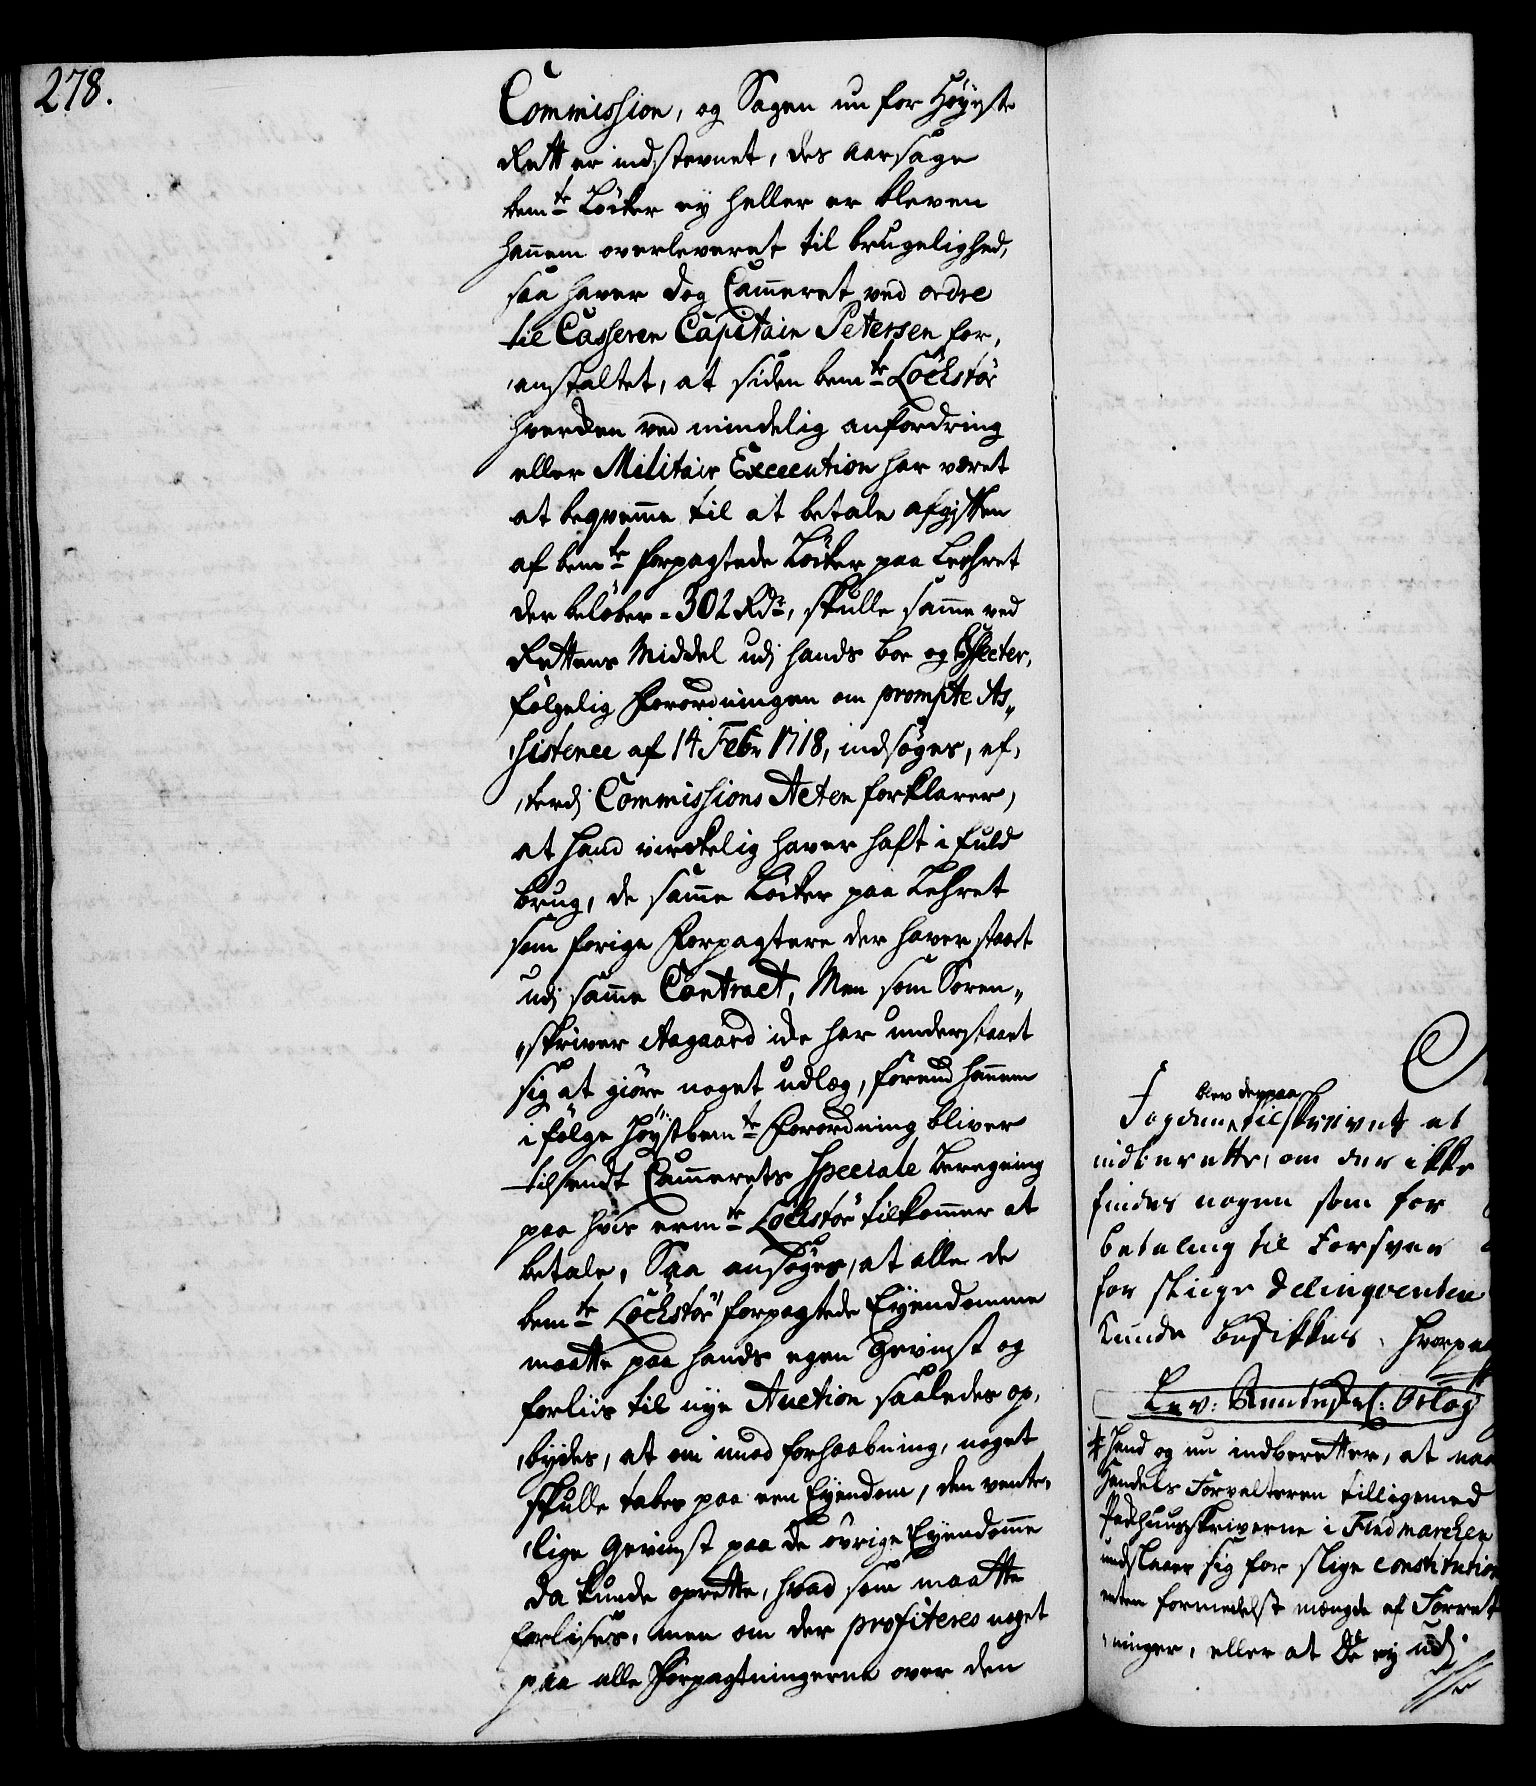 278.
Commission, og Sagen nu for Høyeste
Rett er indstevnet, des aarsage
bem.te Löcker ey heller er bleven
hannem overleveret til brugelighed,
saa haver dog Cammeret ved ordre
til Casseren Capitain Petersen for,
,anstaltet, at siden bem.te Löchstör
hverken ved mindelig anfordring
eller Militair Execution har været
at beqvemme til at betale afgiften
af bem.te forpagtede Löcker paa Lehret
der beløber = 302 Rdr, skulle samme ved
Rettens Middel udj hands boe og Effecter,
følgelig Forordningen om prompte As,,
,sistence af 14 Febr 1718, indsøges, ef,
,terdj Commissions Acten forklarer,
at hand virckelig haver haft i fuld
brug, de samme Löcker paa Lehret
som forige Forpagtere der haver staaet
udj samme Contract, Men som Soren,,
,,skriver Aagaard icke har understaaet
sig at giøre noget udlæg, førend hannem
i følge høystbem.te Forordning bliver
tilsendt Cammerets Speciale beregning
paa hvis erm.te Löchstör tilkommer at
betale, Saa ansøges, at alle de
bem.te Löchstör forpagtede Eyendomme
maatte paa hands egen Gevinst og
forliis til nye Auction saaledes op,
,bydes, at om imod forhaabning, noget
skulle tabes paa een Eyendom, den vente,
,lige gevinst paa de øvrige Eyendomme
da kunde oprette, hvad som maatte
forlises, men om der profiteres noget
paa alle Forpagtningerne over den
blev derpaa
Fogden tilskrivet at
indberette, om der ikke
findes nogen som for
betaling til Forsvar
for slige Delinqventer
kunde beskikkes, hvorpaa
Hand og nu indberetter, at
Handels Forvalteren tilligemed
Packhuusskriverne i Findmarcken
undslaaer sig for slige constitution
enten formedelst mængde af Forret
,ninger, eller at De ey udj